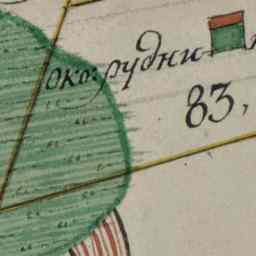 окорудни
83,